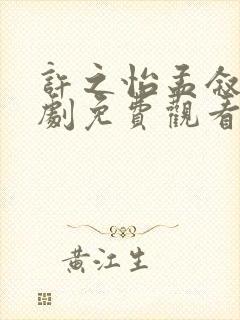 許之怡孟叙
劇免費觀看
黃江生